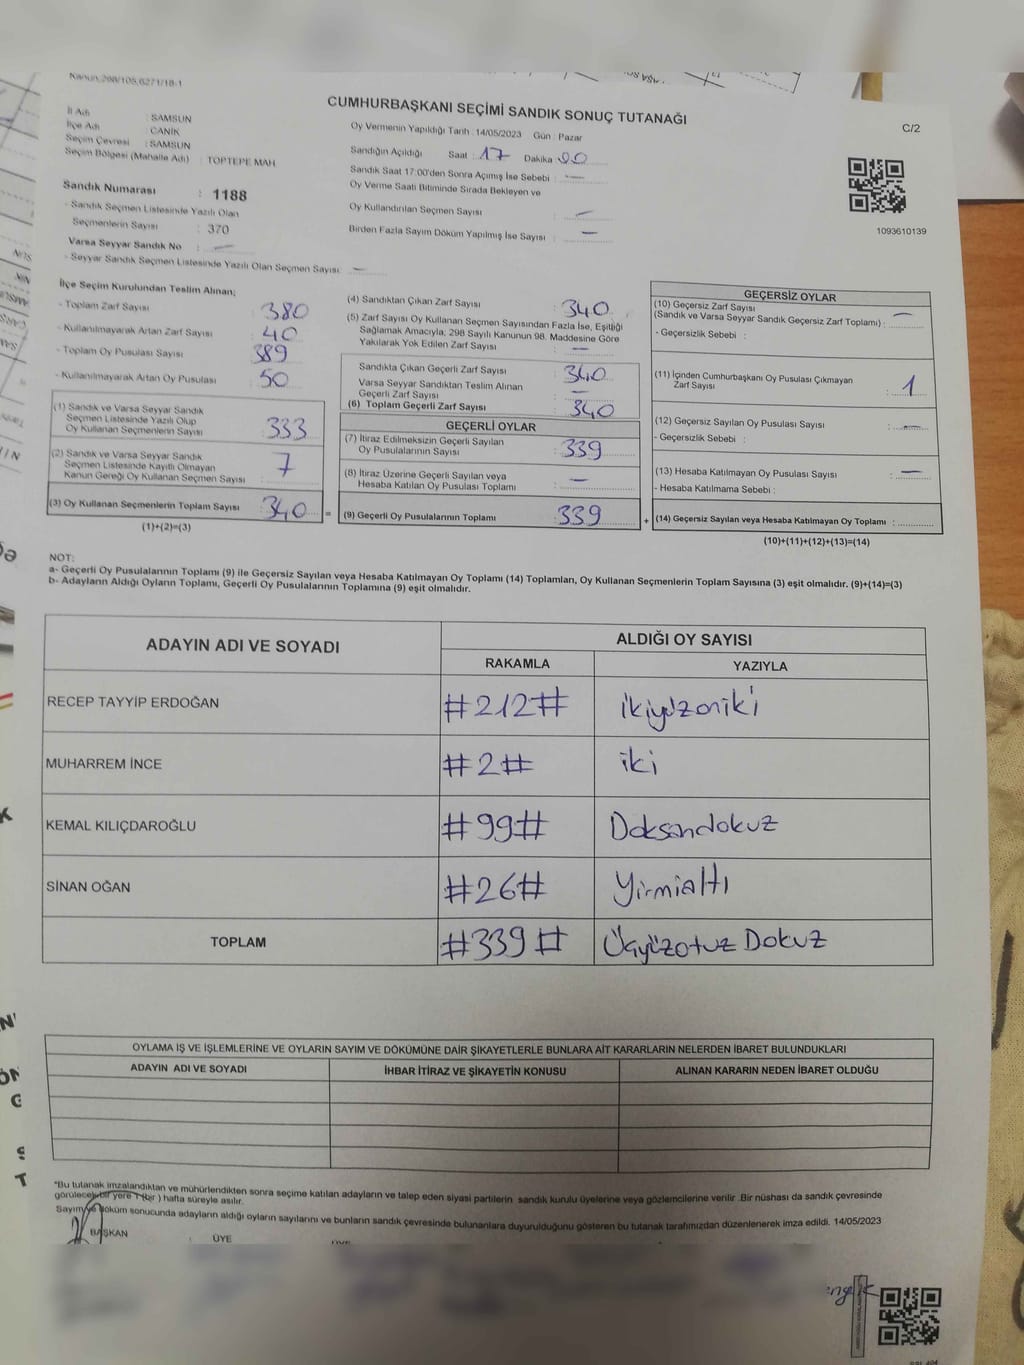 Kanun:298/105,6271/18-1
CUMHURBAŞKANI SEÇİMİ SANDIK SONUÇ TUTANAĞI
C/2
İl Adı : SAMSUN
İlçe Adı : CANİK
Seçim Çevresi : SAMSUN
Seçim Bölgesi (Mahalle Adı) : TOPTEPE MAH
Sandık Numarası : 1188
- Sandık Seçmen Listesinde Yazılı Olan
Seçmenlerin Sayısı : 370
Varsa Seyyar Sandık No : —
- Seyyar Sandık Seçmen Listesinde Yazılı Olan Seçmen Sayısı : —
Oy Vermenin Yapıldığı Tarih : 14/05/2023 Gün : Pazar
Sandığın Açıldığı Saat : 17 Dakika : 00
Sandık Saat 17:00'den Sonra Açımış İse Sebebi : —
Oy Verme Saati Bitiminde Sırada Bekleyen ve
Oy Kullandırılan Seçmen Sayısı : —
Birden Fazla Sayım Döküm Yapılmış İse Sayısı : —
1093610139
İlçe Seçim Kurulundan Teslim Alınan;
- Toplam Zarf Sayısı : 380
- Kullanılmayarak Artan Zarf Sayısı : 40
- Toplam Oy Pusulası Sayısı : 389
- Kullanılmayarak Artan Oy Pusulası : 50
(1) Sandık ve Varsa Seyyar Sandık
Seçmen Listesinde Yazılı Olup
Oy Kullanan Seçmenlerin Sayısı : 333
(2) Sandık ve Varsa Seyyar Sandık
Seçmen Listesinde Kayıtlı Olmayan
Kanun Gereği Oy Kullanan Seçmen Sayısı : 7
(3) Oy Kullanan Seçmenlerin Toplam Sayısı : 340
(1)+(2)=(3)
(4) Sandıktan Çıkan Zarf Sayısı : 340
(5) Zarf Sayısı Oy Kullanan Seçmen Sayısından Fazla İse, Eşitliği
Sağlamak Amacıyla; 298 Sayılı Kanunun 98. Maddesine Göre
Yakılarak Yok Edilen Zarf Sayısı : —
Sandıkla Çıkan Geçerli Zarf Sayısı : 340
Varsa Seyyar Sandıktan Teslim Alınan
Geçerli Zarf Sayısı : —
(6) Toplam Geçerli Zarf Sayısı : 340
GEÇERLİ OYLAR
(7) İtiraz Edilmeksizin Geçerli Sayılan
Oy Pusulalarının Sayısı : 339
(8) İtiraz Üzerine Geçerli Sayılan veya
Hesaba Katılan Oy Pusulası Toplamı : —
= (9) Geçerli Oy Pusulalarının Toplamı : 339
GEÇERSİZ OYLAR
(10) Geçersiz Zarf Sayısı
(Sandık ve Varsa Seyyar Sandık Geçersiz Zarf Toplamı) : —
- Geçersizlik Sebebi :
(11) İçinden Cumhurbaşkanı Oy Pusulası Çıkmayan
Zarf Sayısı : 1
(12) Geçersiz Sayılan Oy Pusulası Sayısı : —
- Geçersizlik Sebebi :
(13) Hesaba Katılmayan Oy Pusulası Sayısı : —
- Hesaba Katılmama Sebebi :
+ (14) Geçersiz Sayılan veya Hesaba Katılmayan Oy Toplamı :
(10)+(11)+(12)+(13)=(14)
NOT:
a- Geçerli Oy Pusulalarının Toplamı (9) ile Geçersiz Sayılan veya Hesaba Katılmayan Oy Toplamı (14) Toplamları, Oy Kullanan Seçmenlerin Toplam Sayısına (3) eşit olmalıdır. (9)+(14)=(3)
b- Adayların Aldığı Oyların Toplamı, Geçerli Oy Pusulalarının Toplamına (9) eşit olmalıdır.
ADAYIN ADI VE SOYADI ALDIĞI OY SAYISI
RAKAMLA YAZIYLA
RECEP TAYYİP ERDOĞAN #212# ikiyüzoniki
MUHARREM İNCE #2# iki
KEMAL KILIÇDAROĞLU #99# Doksandokuz
SİNAN OĞAN #26# Yirmialtı
TOPLAM #339# Üçyüzotuz Dokuz
OYLAMA İŞ VE İŞLEMLERİNE VE OYLARIN SAYIM VE DÖKÜMÜNE DAİR ŞİKAYETLERLE BUNLARA AİT KARARLARIN NELERDEN İBARET BULUNDUKLARI
ADAYIN ADI VE SOYADI İHBAR İTİRAZ VE ŞİKAYETİN KONUSU ALINAN KARARIN NEDEN İBARET OLDUĞU
*Bu tutanak imzalandıktan ve mühürlendikten sonra seçime katılan adayların ve talep eden siyasi partilerin sandık kurulu üyelerine veya gözlemcilerine verilir .Bir nüshası da sandık çevresinde
görülecek bir yere 1 (bir ) hafta süreyle asılır.
Sayım ve döküm sonucunda adayların aldığı oyların sayılarını ve bunların sandık çevresinde bulunanlara duyurulduğunu gösteren bu tutanak tarafımızdan düzenlenerek imza edildi. 14/05/2023
BAŞKAN ÜYE